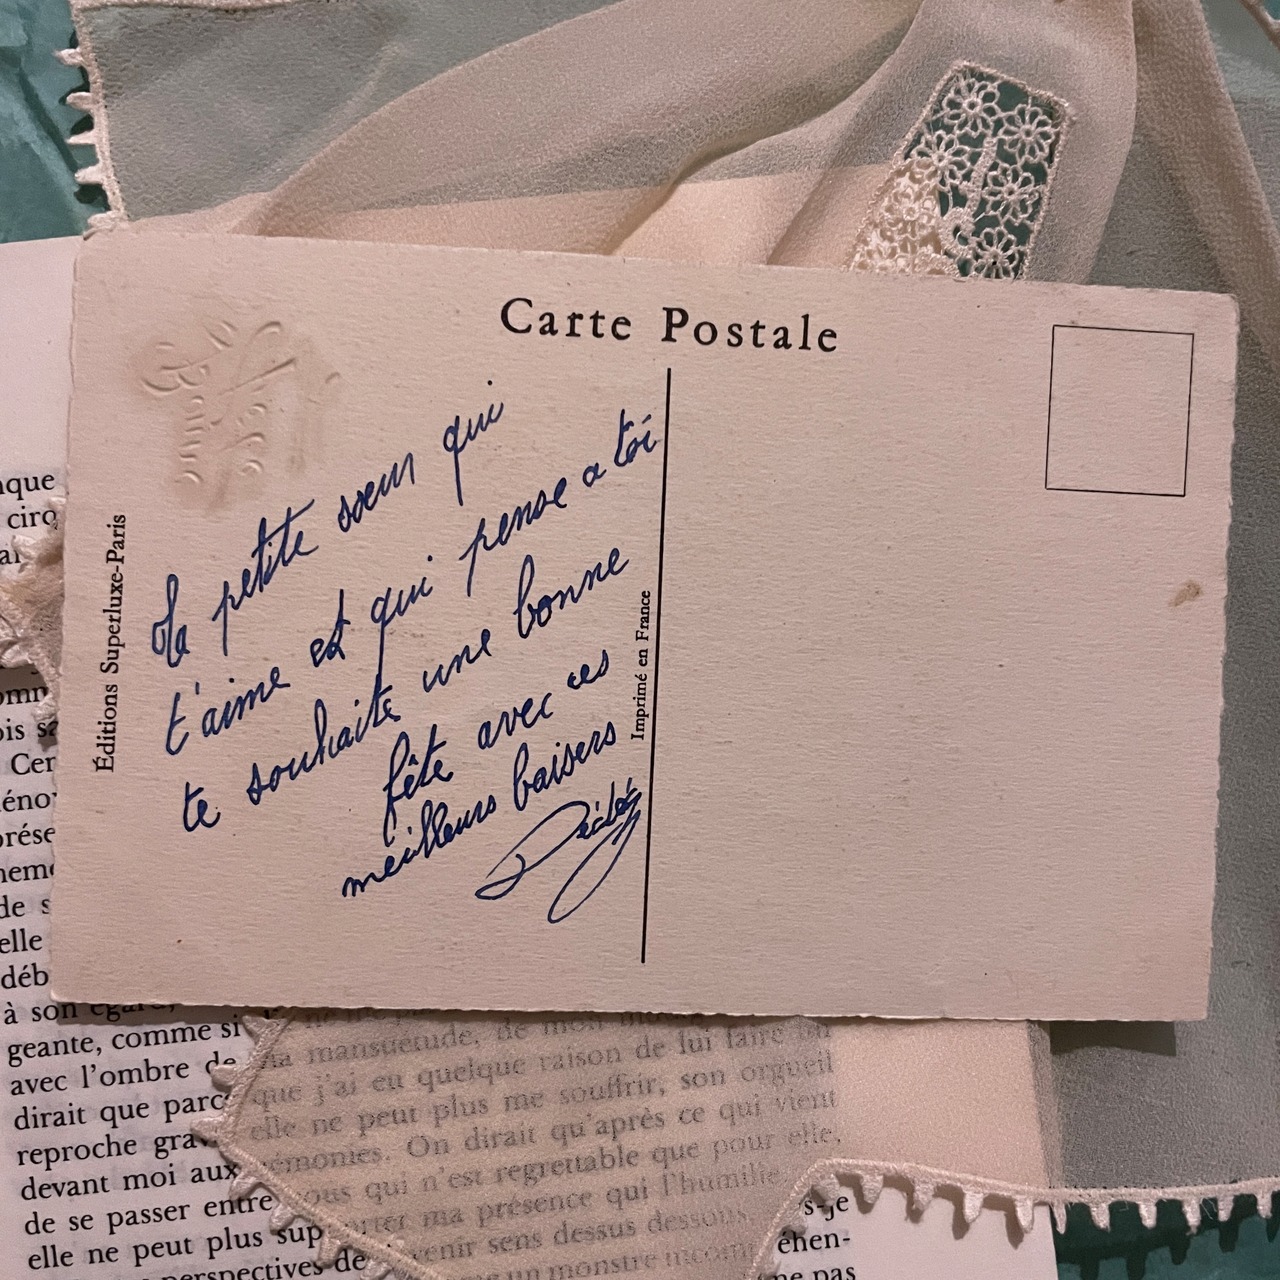 Carte Postale
Éditions Superluxe-Paris
La petite sœur qui
t'aime et qui pense a toi
te souhaite une bonne
fête avec ces
meilleurs baisers
Imprimé en France
que
cirq
omm
ois sa
Cer
éno
prése
neme
de s
elle
déb
à son égard,
geante, comme si
avec l'ombre de
dirait que parc
reproche grav
devant moi aux
de se passer entre
elle ne peut plus sup
perspectives de
ma mansuétude, de mon
que j'ai eu quelque raison de lui faire un
elle ne peut plus me souffrir, son orgueil
émonies. On dirait qu'après ce qui vient
ous qui n'est regrettable que pour elle,
orter ma présence qui l'humilie.
venir sens dessus dessous.
un monstre incom
s-je
éhen-
ne pas